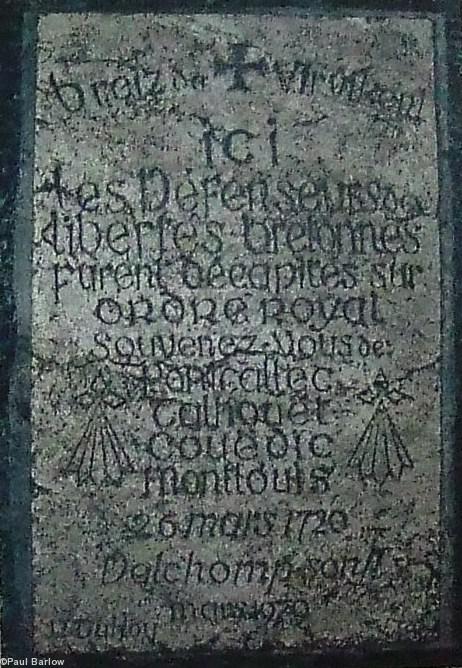 Breiz da Virviken
ici
les Défenseurs des
libertés bretonnes
furent décapités sur
ordre royal
souvenez-vous de:
Pontcallec
Talhouët
Couëdic
Montlouis
26 mars 1720
Dalchomp sonj
mars 1979
©Paul Barlow